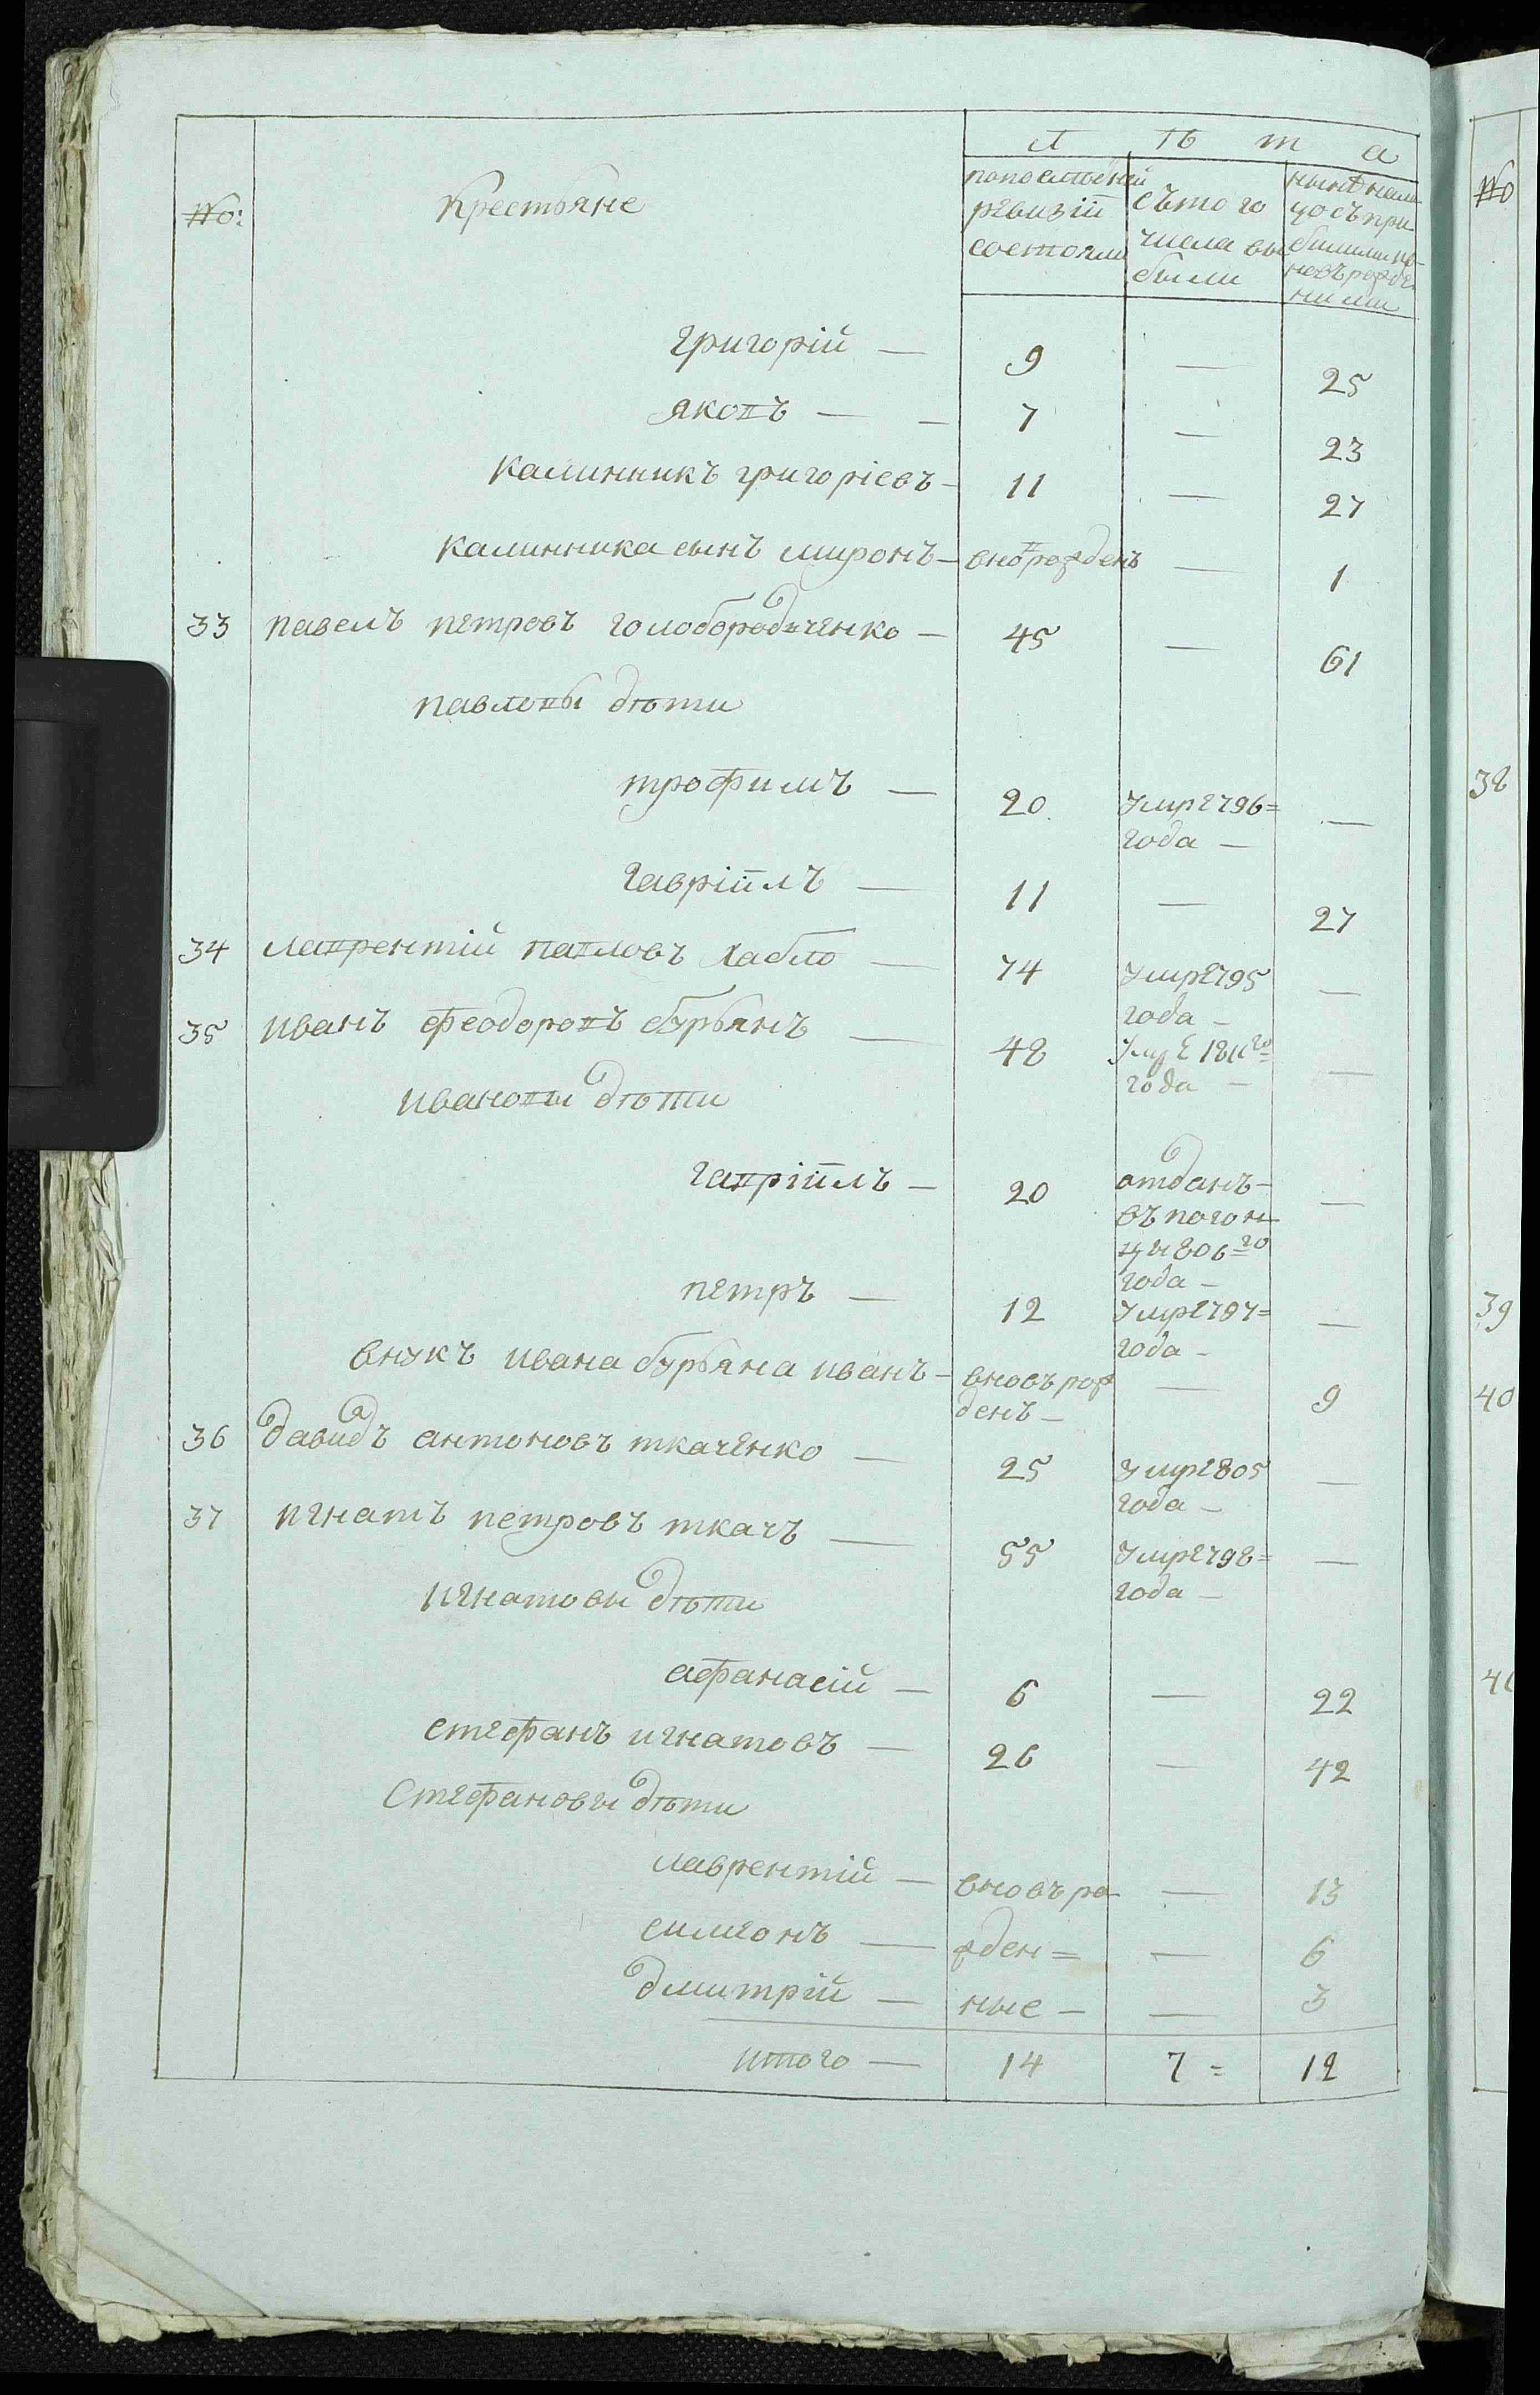 №:
Крестьяне
Л ѣ т а
по последней ревизiи состояли
съ того числа выбыли
ныне налицо съ прибылыми и новърожденными
григорiй — 9 — 25
яковъ — — 7 — 23
калинникъ григорiевъ — 11 — 27
калинника сынъ миронъ — вновъ рожденъ — 1
33 павелъ петровъ голобородченко — 45 — 61
павловы дѣти
трофимъ — 20 умре 796=
года —
гаврiилъ — 11 — 27
34 лаврентiй павловъ хабло — 74 умре 795
года —
35 иванъ феодоровъ бурьянъ — 48 умре 1811го
года —
ивановы дѣти
гаврiилъ — 20 отданъ —
въ погон
цы 806го
года —
петръ — 12 умре 797=
года —
внукъ ивана бурьяна иванъ — вновъ рож — 9
денъ —
36 давидъ антоновъ ткаченко — 25 умре 805
года —
37 игнатъ петровъ ткачъ — 55 умре 798=
года —
игнатовы дѣти
афанасiй — 6 — 22
стефанъ игнатовъ — 26 — 42
Стефановы дѣти
лаврентiй — вновъ ро — 13
симеонъ — жден= — 6
дмитрiй — ные — — 3
итого — 14 7 = 12
№
38
39
40